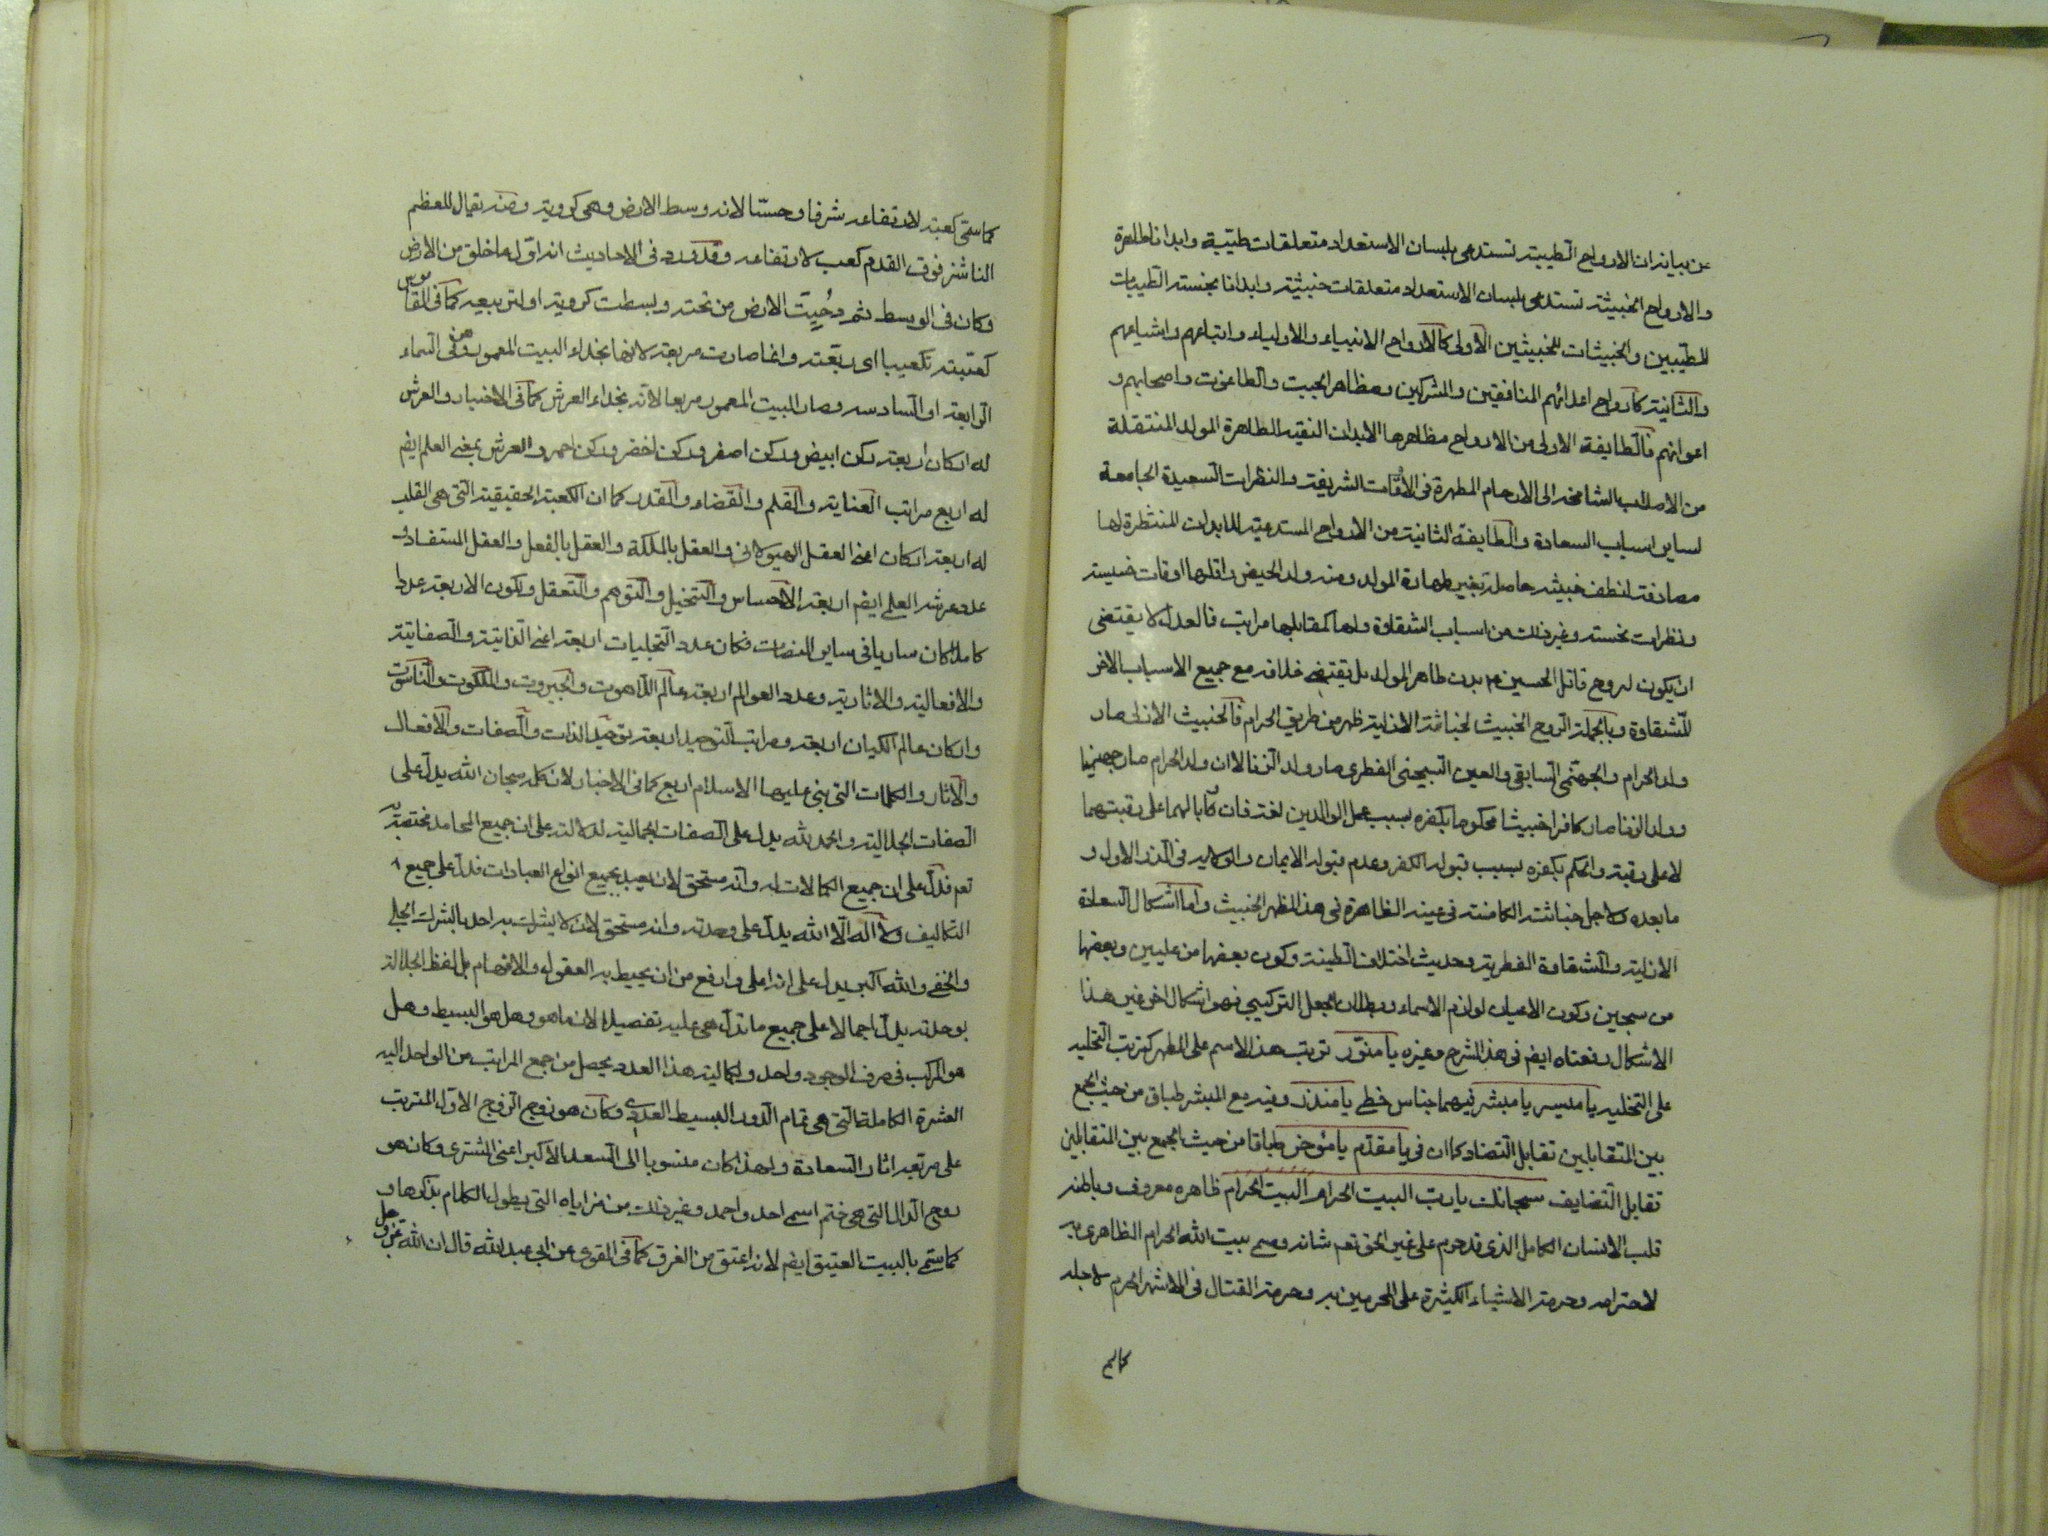 عن بيانه ان الارواح الطيبة تستدعى بلسان الاستعداد متعلقات طيبة وابدانا طاهرة
والارواح الخبيثة تستدعى بلسان الاستعداد متعلقات خبيثة وابدانا نجسة الطيبات
للطيبين والخبيثات للخبيثين الاولى كالارواح الانبياء والاولياء واتباعهم واشياعهم
والثانية كارواح اعدائهم المنافقين والمشركين ومظاهر الجبت والطاغوت واصحابهم و
اعوانهم فالطايفة الاولى من الارواح مظاهرها الابدان النقية الطاهرة المولد المنتقلة
من الاصلاب الشامخة الى الارحام المطهرة فى الاوقات الشريفة والنظرات السعيدة الجامعة
لساير اسباب السعادة والطايفة الثانية من الارواح المستدعية للابدان المنتظرة لها
مصادفة لنطف خبيثة حاصلة بغير طهارة المولد ومنه ولد الحيض واقلها اوقات خسيسة
ونظرات نحسة وغير ذلك من اسباب الشقاوة ولها كمقابلها مراتب فالعدل لا يقتضى
ان يكون لروح قاتل الحسين ع بدن طاهر المولد بل يقتضى خلافه مع جميع الاسباب الاخر
للشقاوة وبالجملة الروح الخبيث لخباثته الازلية ظهر من طريق الحرام فالخبيث الازلى صار
ولد الحرام والجهنمى السابقى والعين السجينى الفطرى صار ولد الزنا لا ان ولد الحرام صار جهنميا
وولد الزنا صار كافرا خبيثا محكوما بكفره بسبب عمل الوالدين لغترفان وبالهما على رقبتهما
لا على رقبته والحكم بكفره بسبب قبوله الكفر وعدم قبوله الايمان والولاية فى الذر الاول و
ما بعده ولاجل خباثته الكامنة فى عينه الظاهرة فى هذا المظهر الخبيث واما اشكال السعادة
الازلية والشقاوة الفطرية وحديث اختلاف الطينة وكون بعضها من عليين وبعضها
من سجين وكون الاعيان لوازم الاسماء وبطلان الجعل التركيبى فهو اشكال اخر غير هذا
الاشكال دفعناه ايضا فى هذا الشرح وغيره يا منور ترتب هذا الاسم على المطهر كترتب التحلية
على التخلية يا ميسر يا مبشر فيهما جناس خطى يا منذر وفيه مع المبشر طباق من حيث الجمع
بين المتقابلين تقابل التضاد كما ان فى يا مقدم يا مؤخر طباقا من حيث الجمع بين المتقابلين
تقابل التضايف سبحانك يا رب البيت الحرام البيت الحرام ظاهره معروف وباطنه
قلب الانسان الكامل الذى قد حرم على غير الحق تعم شانه وسمى بيت الله الحرام الظاهرى به
لاحترامه وحرمة الاشياء الكثيرة على المحرمين به وحرمة القتال فى الاشهر الحرم لاجله
كما سمى
كما سمى كعبة لارتفاعه شرفا وحسا لانه وسط الارض وهى كروية ومنه يقال للعظم
الناشز فوق القدم كعب لارتفاعه وقد ورد فى الاحاديث انه اول ما خلق من الارض
وكان فى الوسط ثم دحيت الارض من تحته وبسطت كروية او لتربيعه كما فى القاموس
كعبته تكعيبا اى ربعته وانما صارت مربعة لانها بحذاء البيت المعمور وهى فى السماء
الرابعة او السادسه وصار البيت المعمور مربعا لانه بحذاء العرش كما فى الاخبار والعرش
له اركان اربعة ركن ابيض وركن اصفر وركن اخضر وركن احمر والعرش بمعنى العلم ايضا
له اربع مراتب العناية والقلم والقضاء والقدر كما ان الكعبة الحقيقية التى هى القلب
له اربعة اركان اعنى العقل الهيولانى والعقل بالملكة والعقل بالفعل والعقل المستفاد و
عدد عرشه العلمى ايضا اربعة الاحساس والتخيل والتوهم والتعقل ولكون الاربعة عددا
كاملا كان ساريا فى ساير المقامات فكان عدد التجليات اربعة اعنى الذاتية والصفاتية
والافعالية والاثارية وعدد العوالم اربعة عالم اللاهوت والجبروت والملكوت والناسوت
واركان عالم الكيان اربعة ومراتب التوحيد اربعة توحيد الذات والصفات والافعال
والاثار والكلمات التى بنى عليها الاسلام اربع كما فى الاخبار لان كلمة سبحان الله يدل على
الصفات الجلالية والحمد لله يدل على الصفات الجمالية لدلالته على ان جميع المحامد مختصة به
تعم فدل على ان جميع الكمالات له وانه مستحق لان يعبد بجميع انواع العبادات فدل على جميع
التكاليف ولا اله الا الله يدل على وحدته وانه مستحق لان لا يشرك به احد بالشرك الجلى
والخفى والله اكبر يدل على انه اعلى وارفع من ان يحيط به العقول والافهام بل لفظ الجلالة
بوحدته يدل اجمالا على جميع ما تدل هى عليه تفصيلا لان ما هو وهل هو البسيط وهل
هو المركب فى صرف الوجود واحد ولكمالية هذا العدد يحصل من جمع المراتب من الواحد اليه
العشرة الكاملة التى هى تمام الدور البسيط العددى وكان هو زوج الزوج الاول المترتب
على مرتبه اثار السعادة ولهذا كان منسوبا الى السعد الاكبر اعنى المشترى وكان هو
روح الدال التى هى ختم اسمى احد واحمد وغير ذلك من مزاياه التى يطول الكلام بذكرها و
كما سمى بالبيت العتيق ايضا لانه اعتق من الغرق كما فى القوى عن ابى عبد الله قال ان الله عز وجل